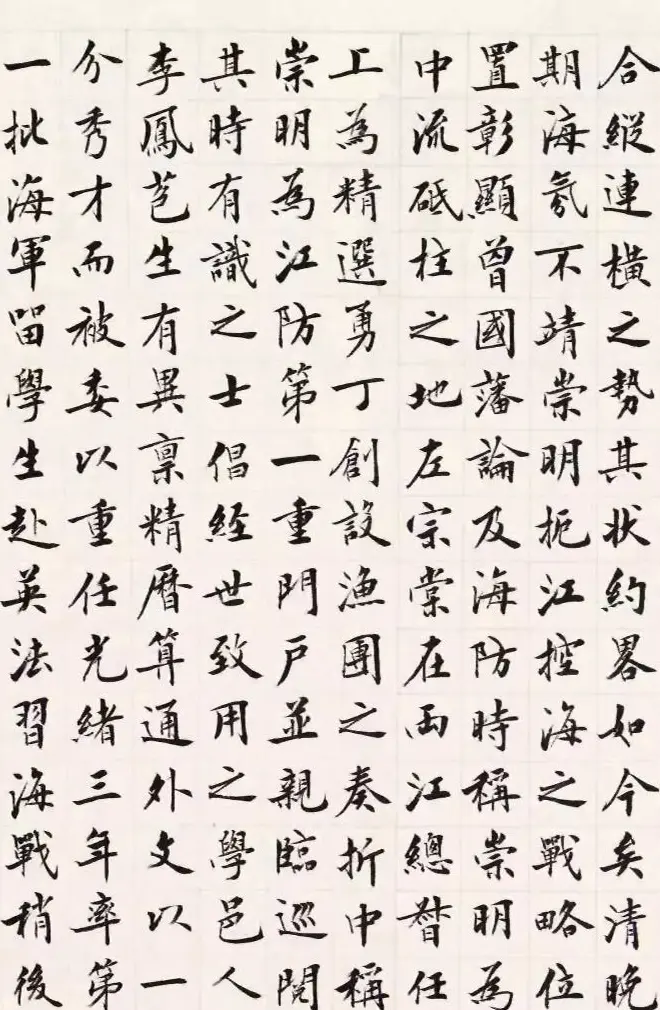 合縱連橫之勢其状約畧如今矣清晚
期海氛不靖崇明扼江控海之戰略位
置彰顯曾國藩論及海防時稱崇明為
中流砥柱之地左宗棠在两江總督任
上為精選勇丁創設漁團之奏折中稱
崇明為江防第一重門戶並親臨巡閱
其時有識之士倡経世致用之學邑人
李鳳苞生有異禀精曆算通外文以一
分秀才而被委以重任光緒三年率第
一批海軍留學生赴英法習海戰稍後